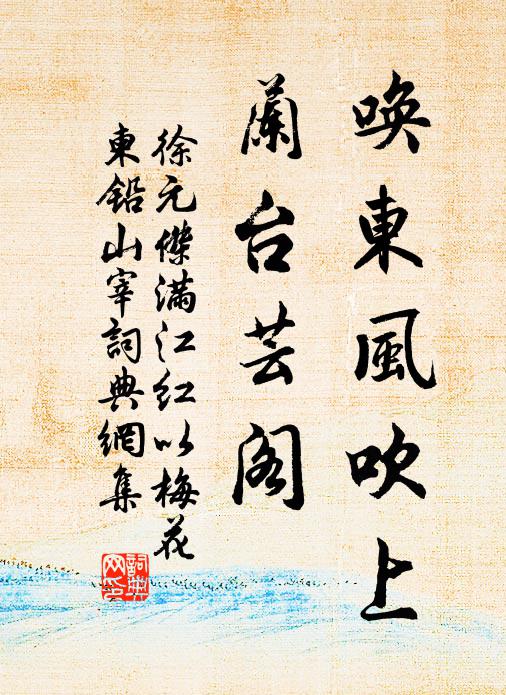 喚東風吹上
蘭台芸閣
徐元傑滿江紅以梅花
東鉛山宰詞典網集
詞典
网